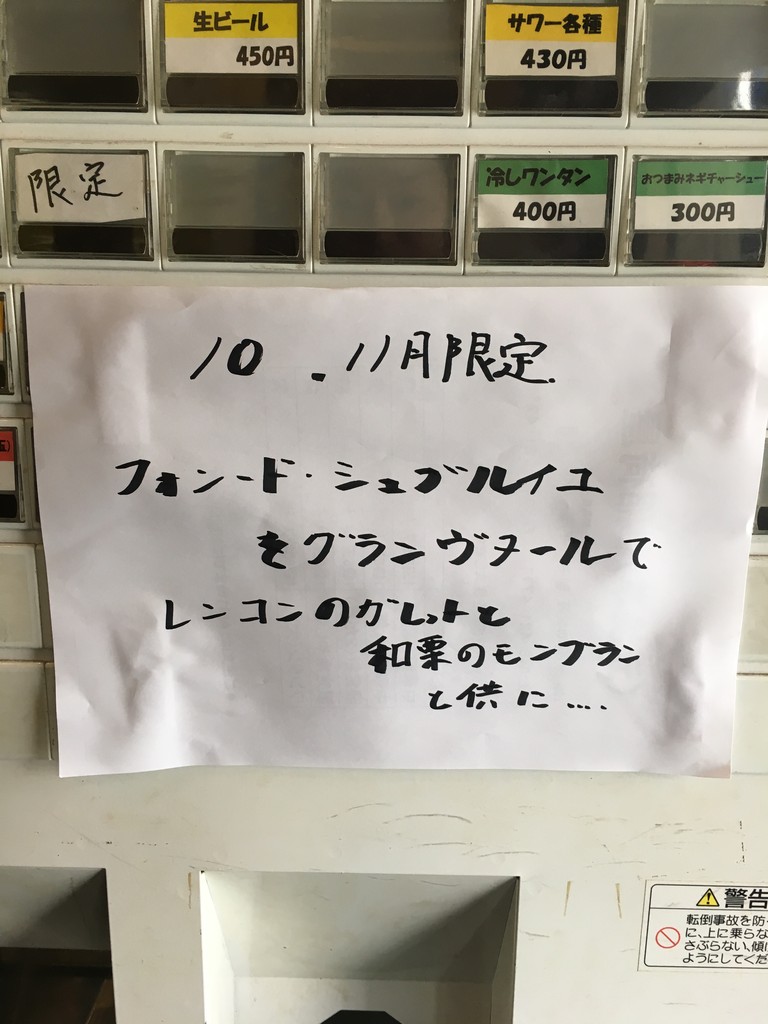 生ビール
450円
サワー各種
430円
限定
冷しワンタン
400円
おつまみネギチャーシュー
300円
10.11月限定.
フォンード・シュブルイユ
をグランヴヌールで
レンコンのガレットと
和栗のモンブラン
と供に....
警告
転倒事故を防
に、上に乗らな
さぶらない、傾
ようにしてくだ